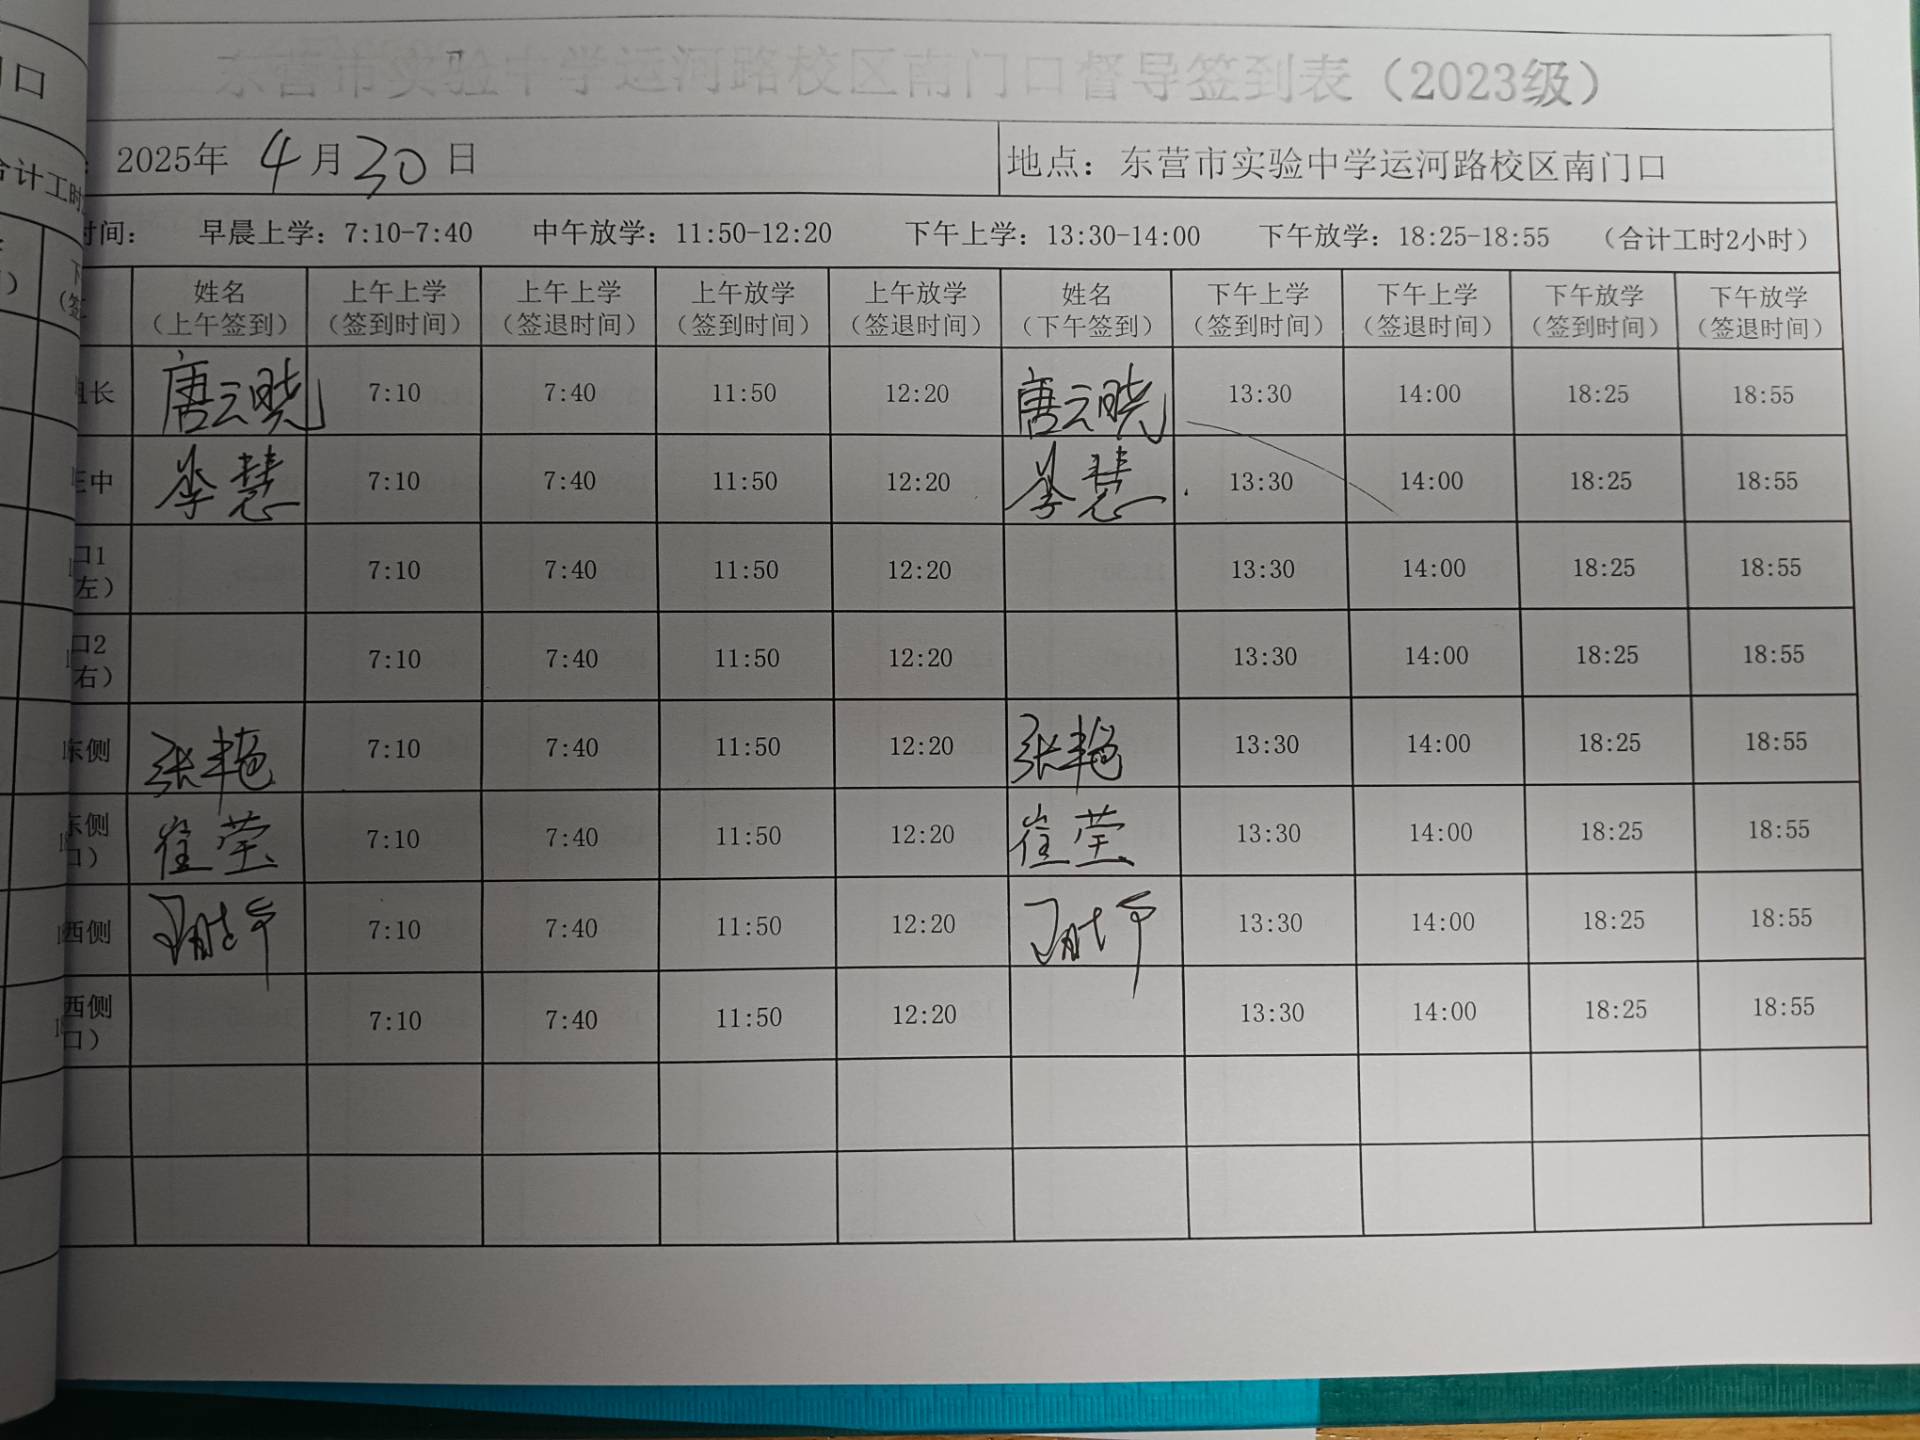 东营市实验中学运河路校区南门口督导签到表（2023级）
2025年 4月30日 地点：东营市实验中学运河路校区南门口
时间： 早晨上学：7:10-7:40 中午放学：11:50-12:20 下午上学：13:30-14:00 下午放学：18:25-18:55 （合计工时2小时）
姓名 上午上学 上午上学 上午放学 上午放学 姓名 下午上学 下午上学 下午放学 下午放学
（上午签到） （签到时间） （签退时间） （签到时间） （签退时间） （下午签到） （签到时间） （签退时间） （签到时间） （签退时间）
组长 唐云晓 7:10 7:40 11:50 12:20 唐云晓 13:30 14:00 18:25 18:55
正中 李慧 7:10 7:40 11:50 12:20 李慧 13:30 14:00 18:25 18:55
口1
左） 7:10 7:40 11:50 12:20 13:30 14:00 18:25 18:55
口2
右） 7:10 7:40 11:50 12:20 13:30 14:00 18:25 18:55
东侧 张艳 7:10 7:40 11:50 12:20 张艳 13:30 14:00 18:25 18:55
东侧
口） 崔莹 7:10 7:40 11:50 12:20 崔莹 13:30 14:00 18:25 18:55
西侧 7:10 7:40 11:50 12:20 13:30 14:00 18:25 18:55
西侧
口） 7:10 7:40 11:50 12:20 13:30 14:00 18:25 18:55
门口
合计工时